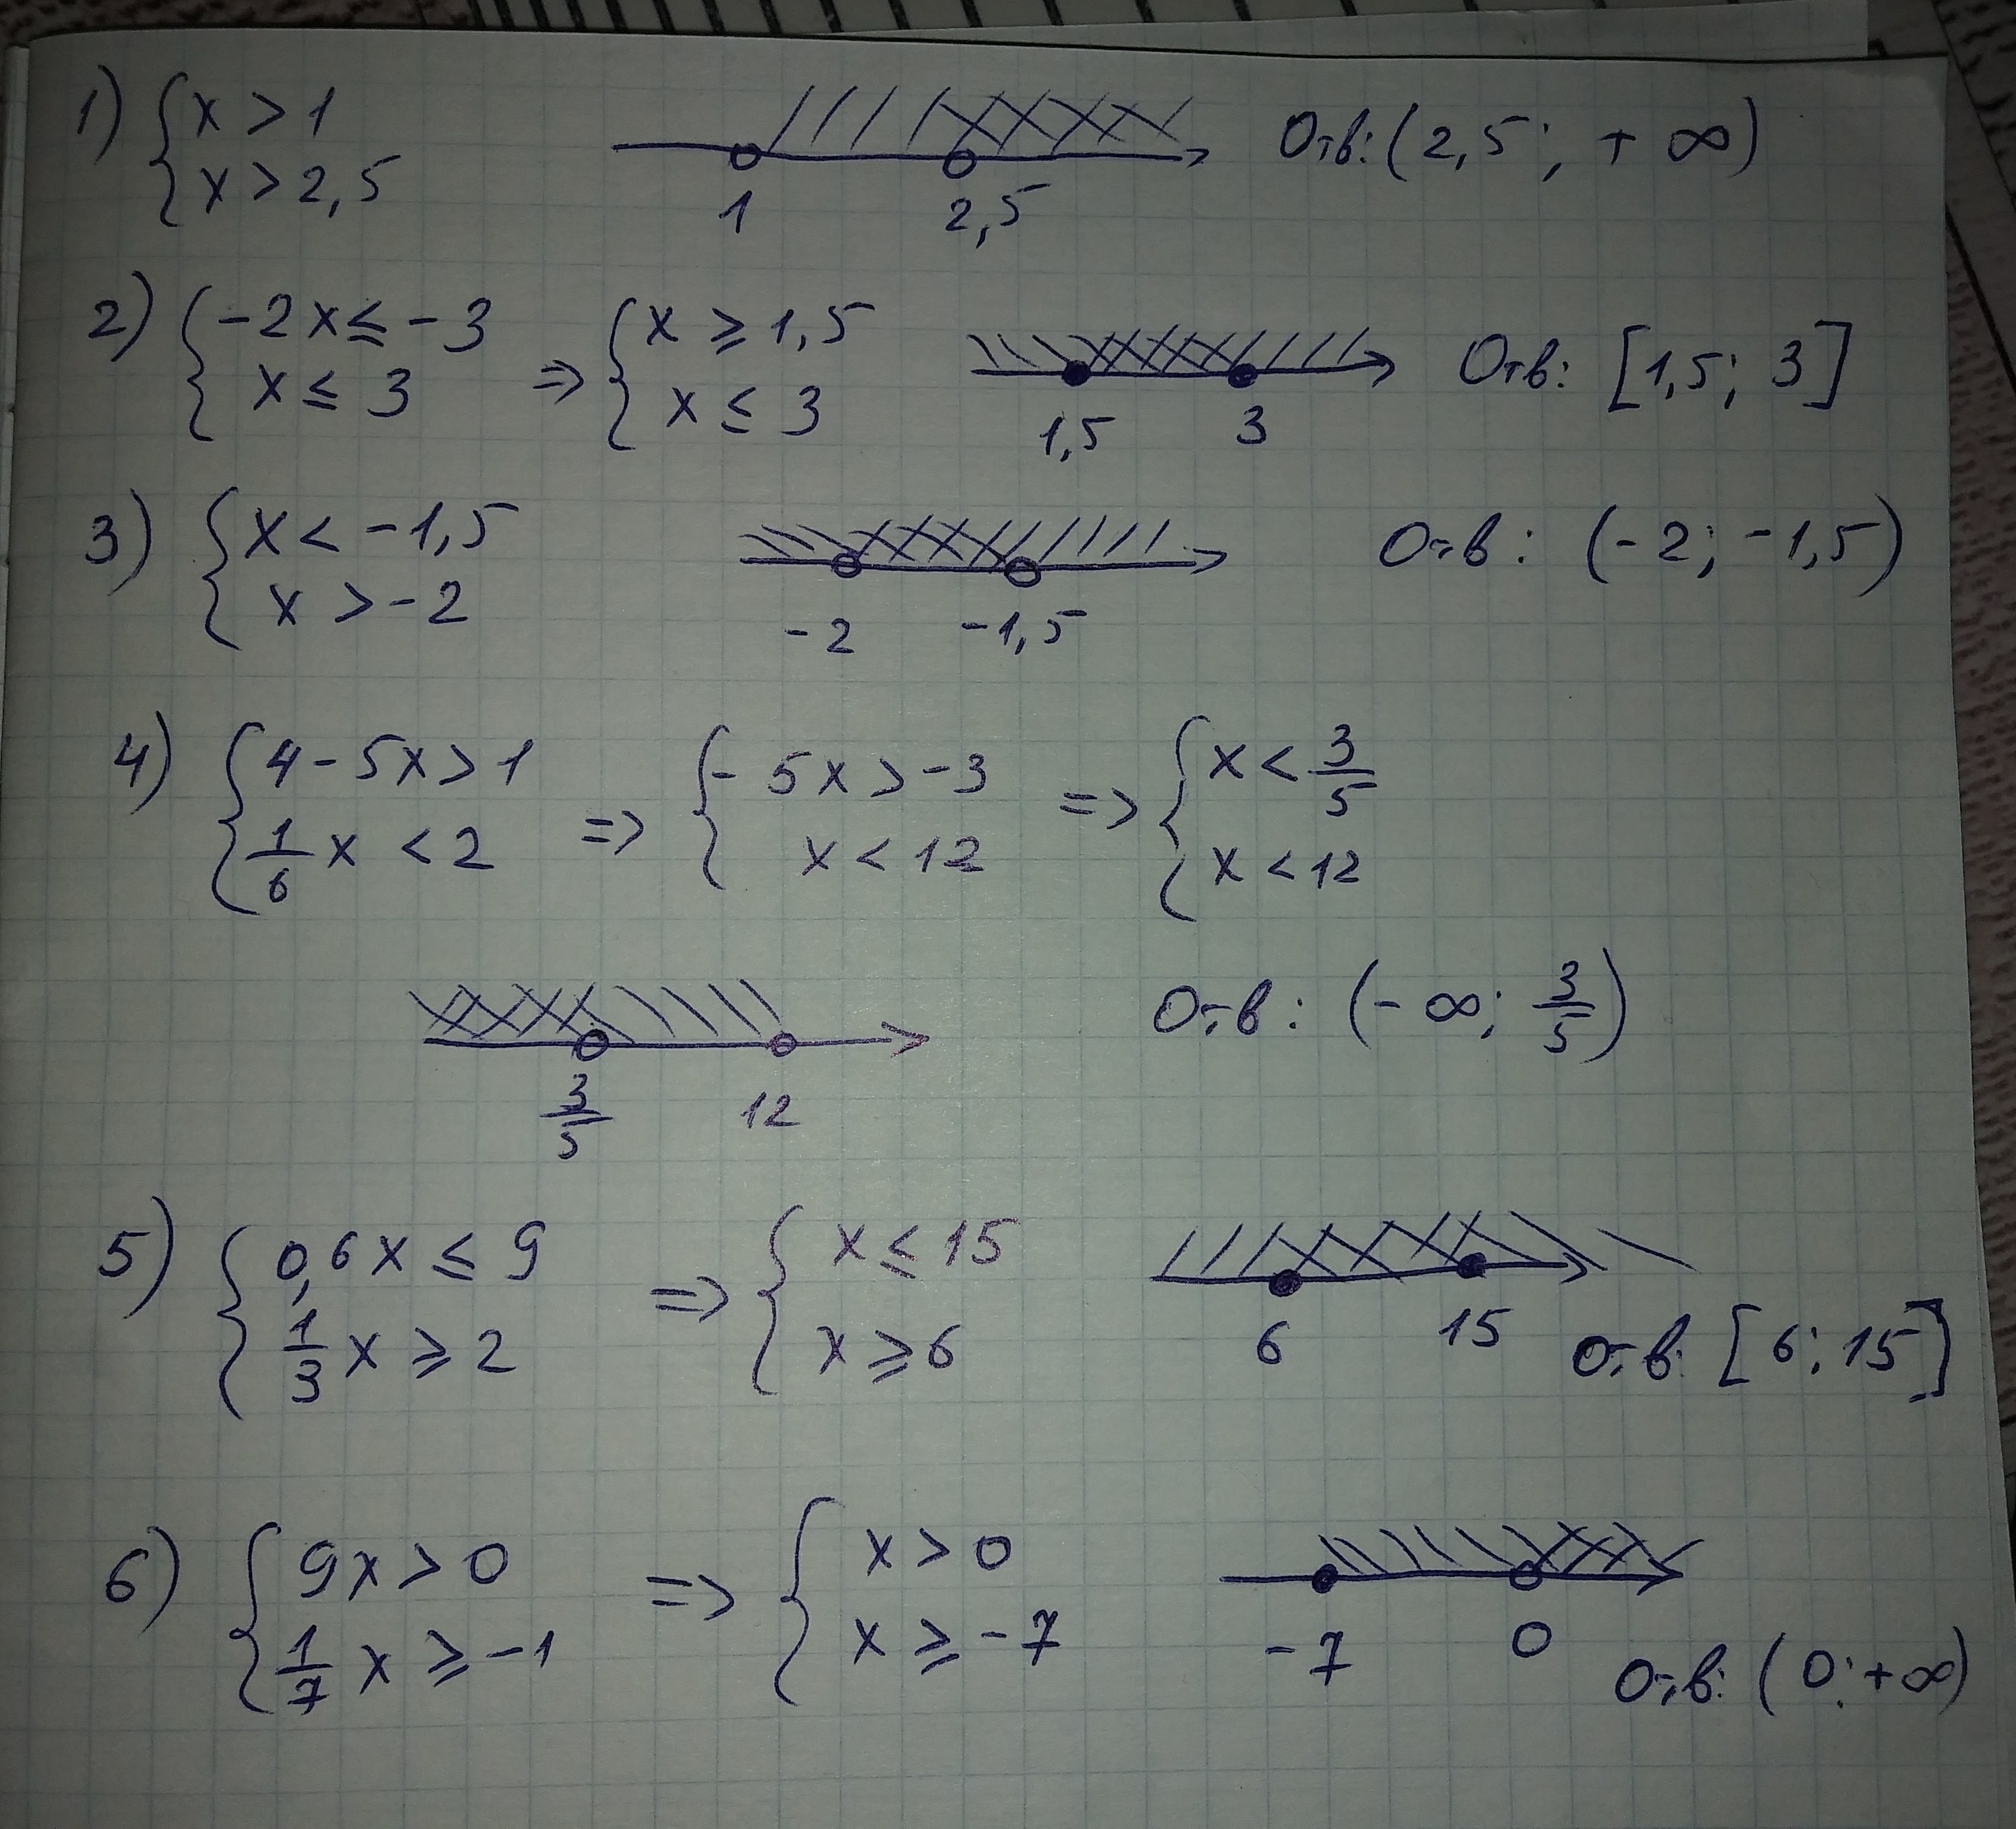 1) { x > 1
x > 2,5
1 2,5
Отв: (2,5; + ∞)
2) { -2x ≤ -3
x ≤ 3
=> { x ⩾ 1,5
x ≤ 3
1,5 3
Отв: [1,5; 3]
3) { x < -1,5
x > -2
-2 -1,5
Отв: (-2; -1,5)
4) { 4 - 5x > 1
1/6 x < 2
=> { - 5x > -3
x < 12
=> { x < 3/5
x < 12
3/5 12
Отв: (- ∞; 3/5)
5) { 0,6x ≤ 9
1/3 x ⩾ 2
=> { x ≤ 15
x ⩾ 6
6 15
Отв: [6; 15]
6) { 9x > 0
1/7 x ⩾ -1
=> { x > 0
x ⩾ -7
-7 0
Отв: (0; +∞)